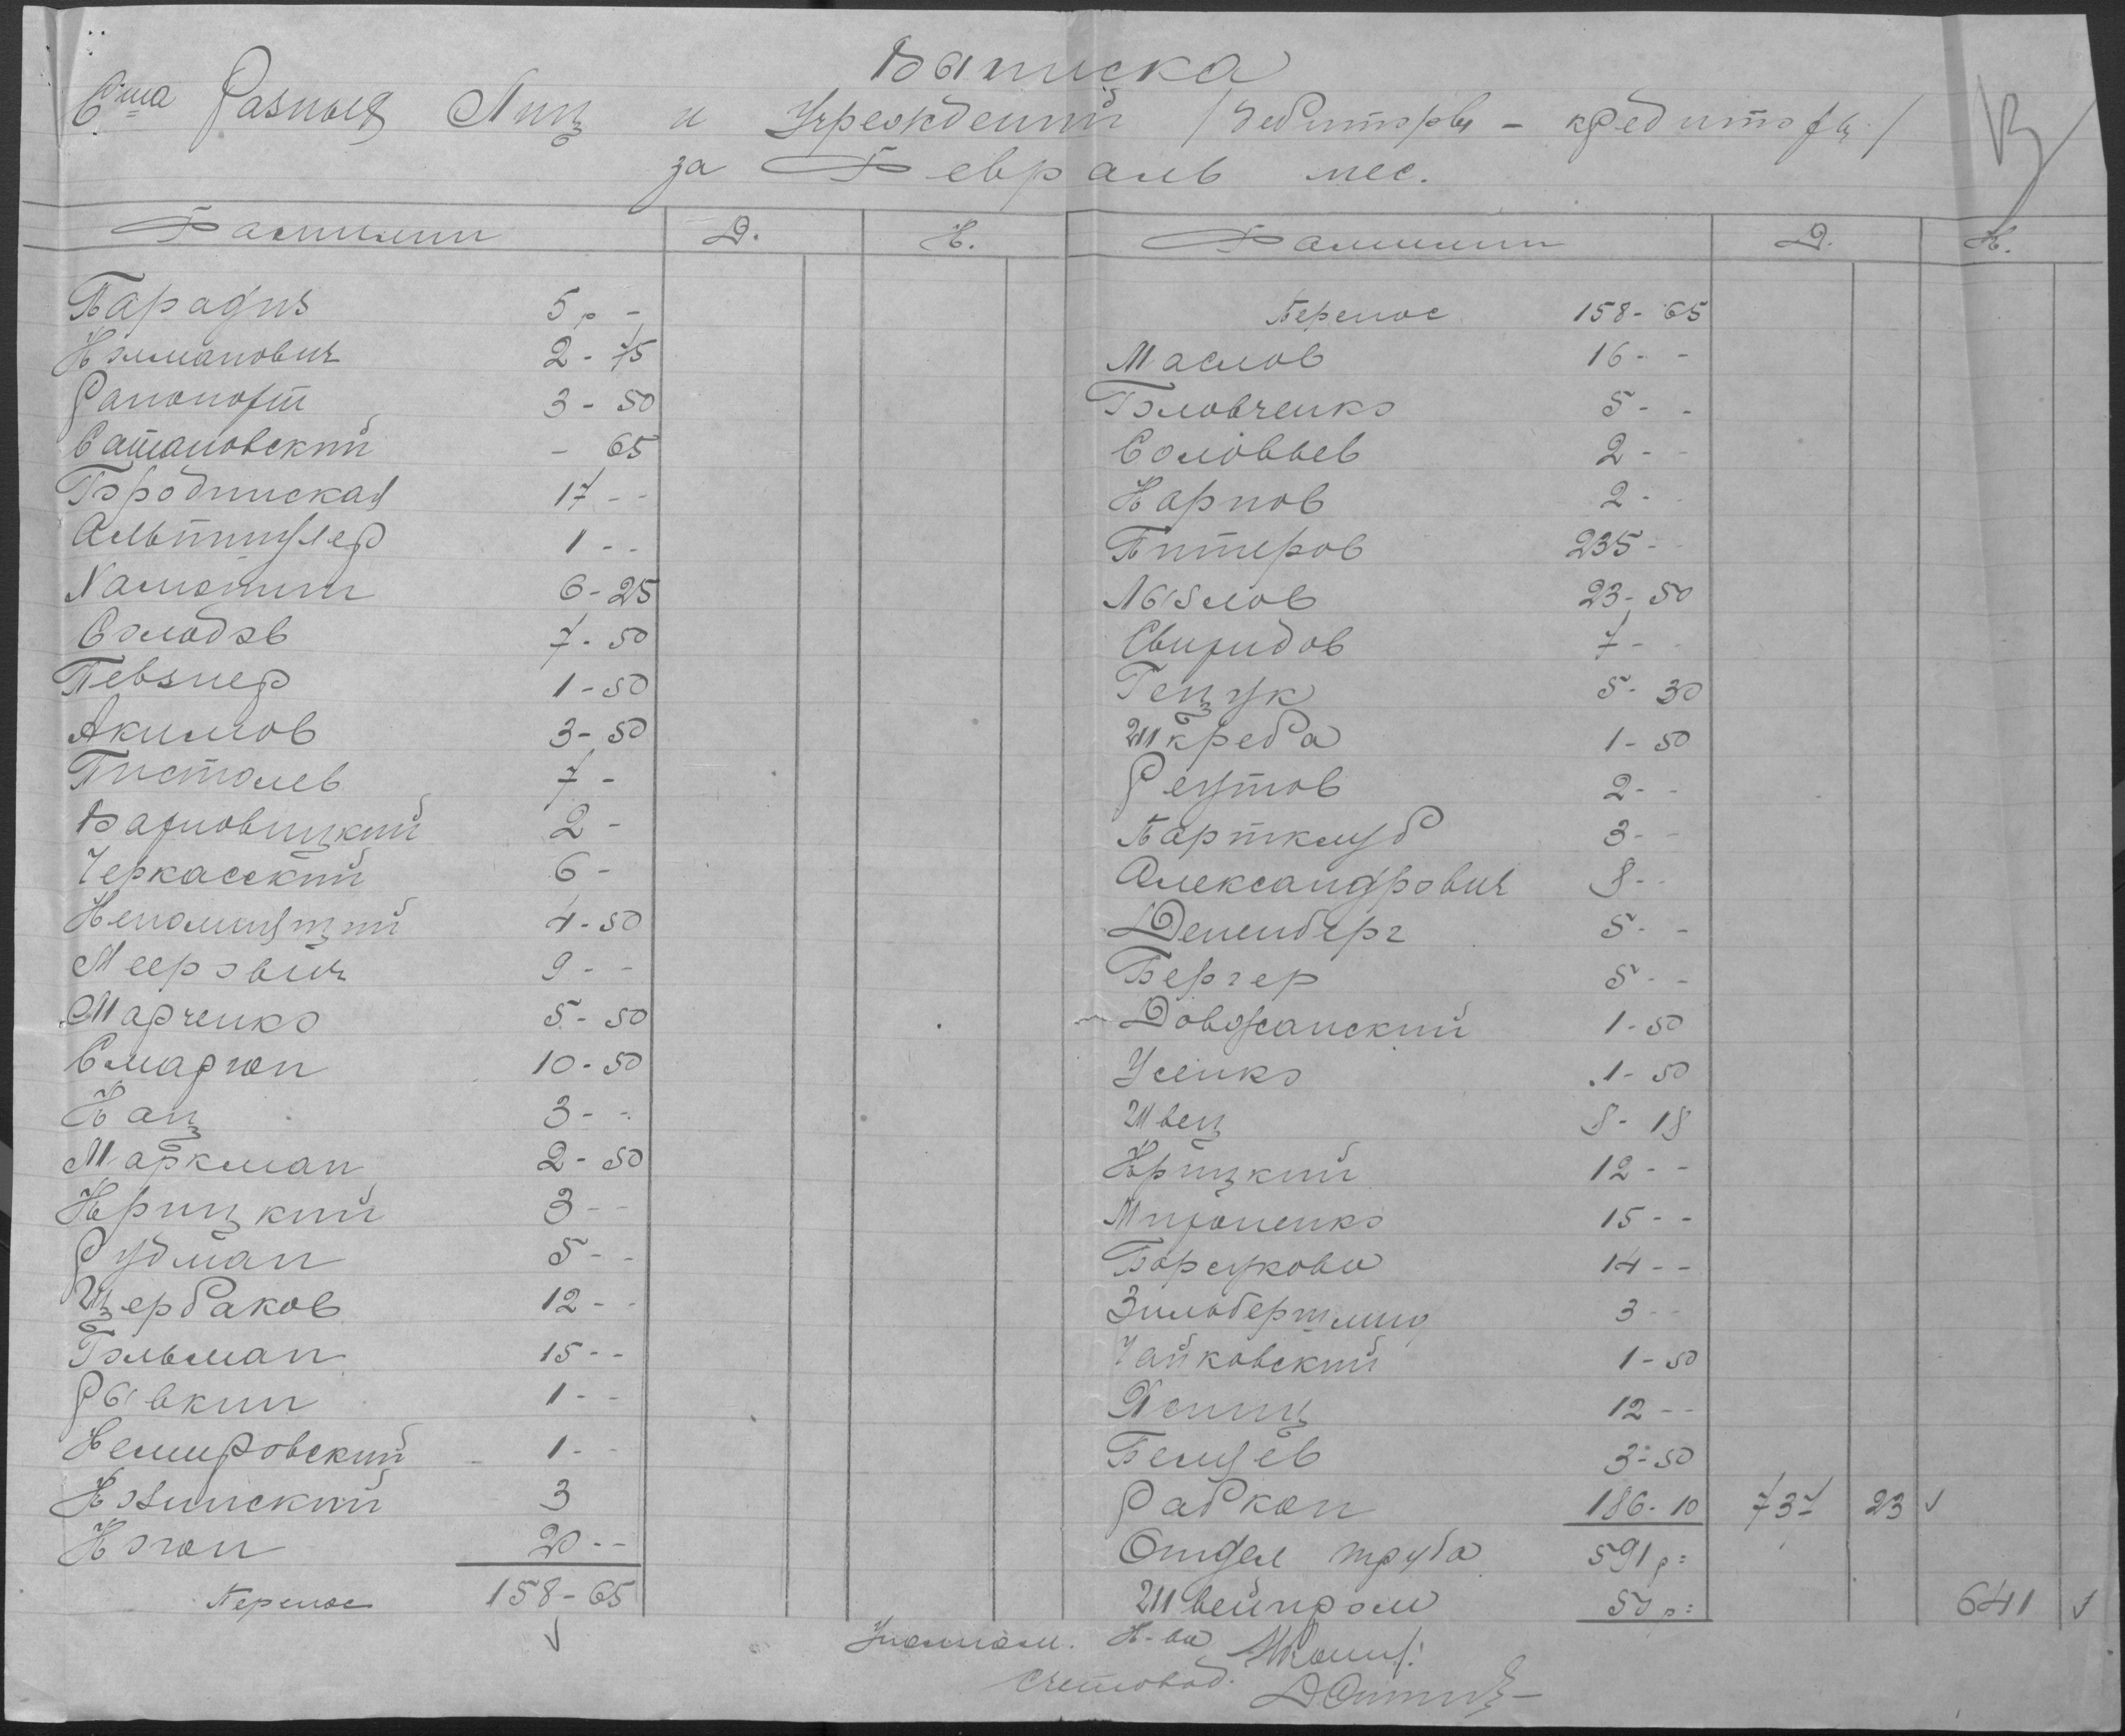 Выписка
Счта Разных Лиц и Учреждений /Дебиторы - кредиторы/
за Февраль мес.
Фамилии Д. К.
Парадиз 5 р -
Колманович 2 - 75
Рапопорт 3 - 50
Сатановский - 65
Городинская 17 - -
Альтшулер 1 - -
Хамотин 6 - 25
Солодов 7 - 50
Певзнер 1 - 50
Акимов 3 - 50
Пистолев 7 -
2 -
Черкасский 6 -
Непомнящий 4 - 50
Меерович 9 - -
Марченко 5 - 50
Смаргон 10 - 50
Кац 3 - -
Маркман 2 - 50
Крицкий 3 - -
Рудман 5 - -
Щербаков 12 - -
Гольман 15 - -
Рывкин 1 - -
Немировский 1 - -
Козинский 3
Коган 20 - -
Перенос 158 - 65
Фамилии Д. К.
Перенос 158 - 65
Маслов 16 - -
Головченко 5 - -
Соловьев 2 - -
Карпов 2 - -
Питеров 235 - -
Лызлов 23 - 50
Свиридов 7 - -
Гецук 5 - 30
Шкреба 1 - 50
Реутов 2 - -
Партклуб 3 - -
Александрович 8 - -
Дененберг 5 - -
Бергер 5 - -
Довжанский 1 - 50
Усенко 1 - 50
Швец 8 - 18
Крицкий 12 - -
Мироненко 15 - -
Борсукова 14 - -
Зильбершмид 3 - -
Чайковский 1 - 50
Ясниц 12 - -
Белцев 3 - 50
Рабкоп 186 - 10 737 23 ✓
Отдел труда 591 р =
Швейпром 50 р = 641 ✓
Уполном. К-ва
Счетовод.